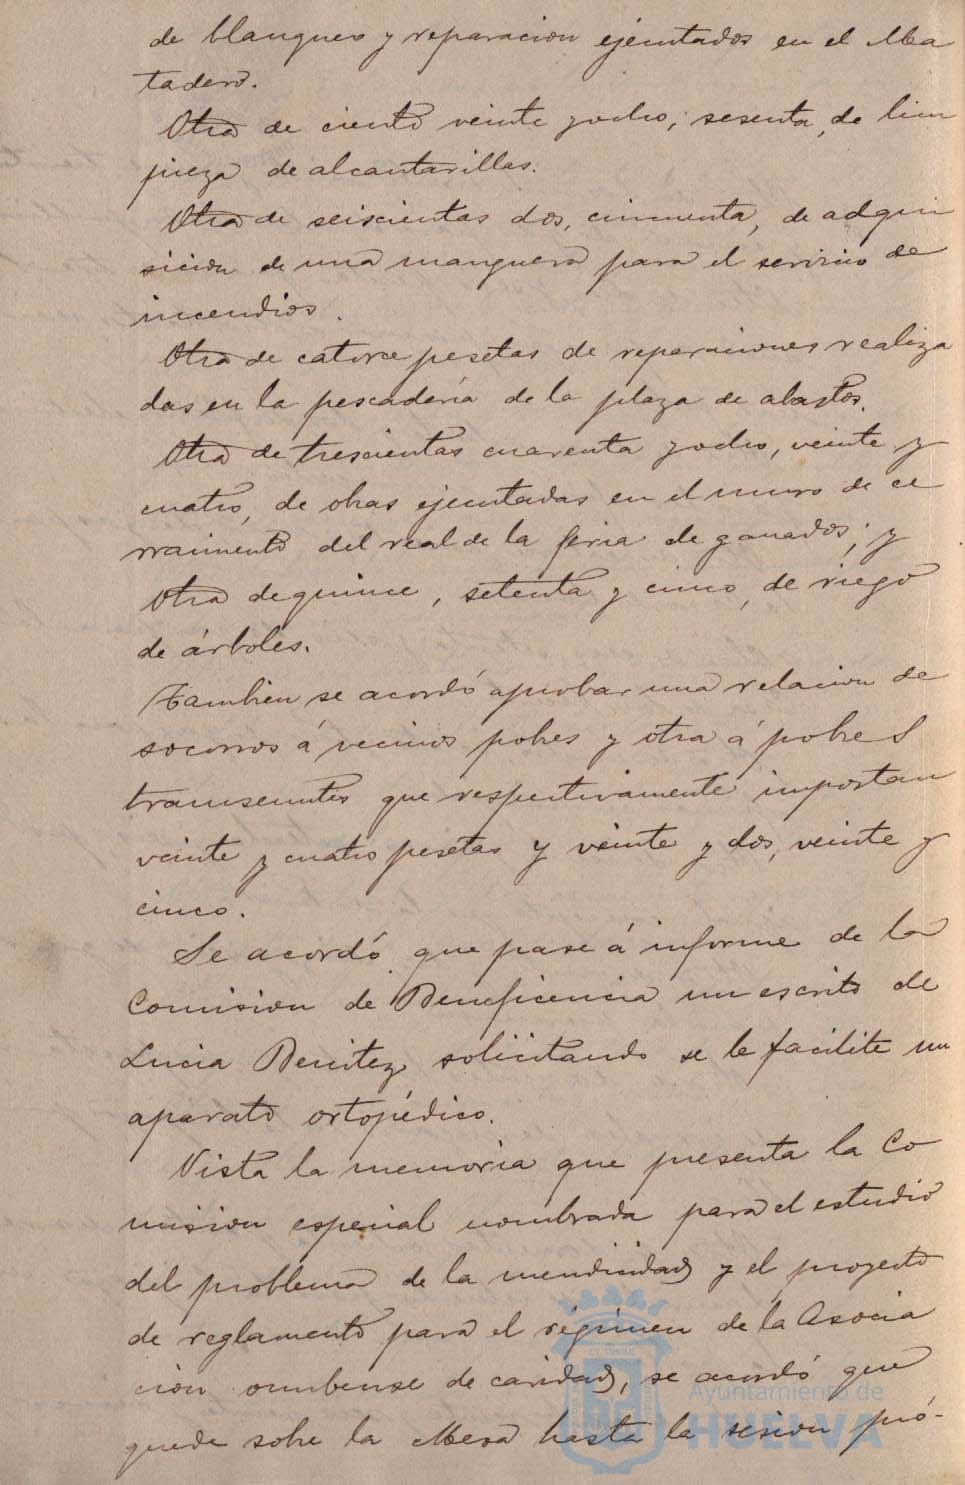 de blanqueo y reparacion ejecutados en el Ma
tadero.
Otra de ciento veinte y ocho, sesenta, de lim
pieza de alcantarillas.
Otra de seiscientas dos, cincuenta, de adqui
sicion de una manguera para el servicio de
incendios.
Otra de catorce pesetas de reparaciones realiza
das en la pescadería de la plaza de abastos.
Otra de trescientas cuarenta y ocho, veinte y
cuatro, de obras ejecutadas en el muro de ce
rramiento del real de la feria de ganados; y
Otra de quince, setenta y cinco, de riego
de árboles.
Tambien se acordó aprobar una relacion de
socorros á vecinos pobres y otra á pobres
transeuntes que respectivamente importan
veinte y cuatro pesetas y veinte y dos, veinte y
cinco.
Se acordó que pase á informe de la
Comision de Beneficencia un escrito de
Lucia Benitez solicitando se le facilite un
aparato ortopédico.
Vista la memoria que presenta la Co
mision especial nombrada para el estudio
del problema de la mendicidad y el proyecto
de reglamento para el régimen de la Asocia
cion onubense de caridad, se acordó que
quede sobre la Mesa hasta la sesion pró-
Ayuntamiento de
HUELVA